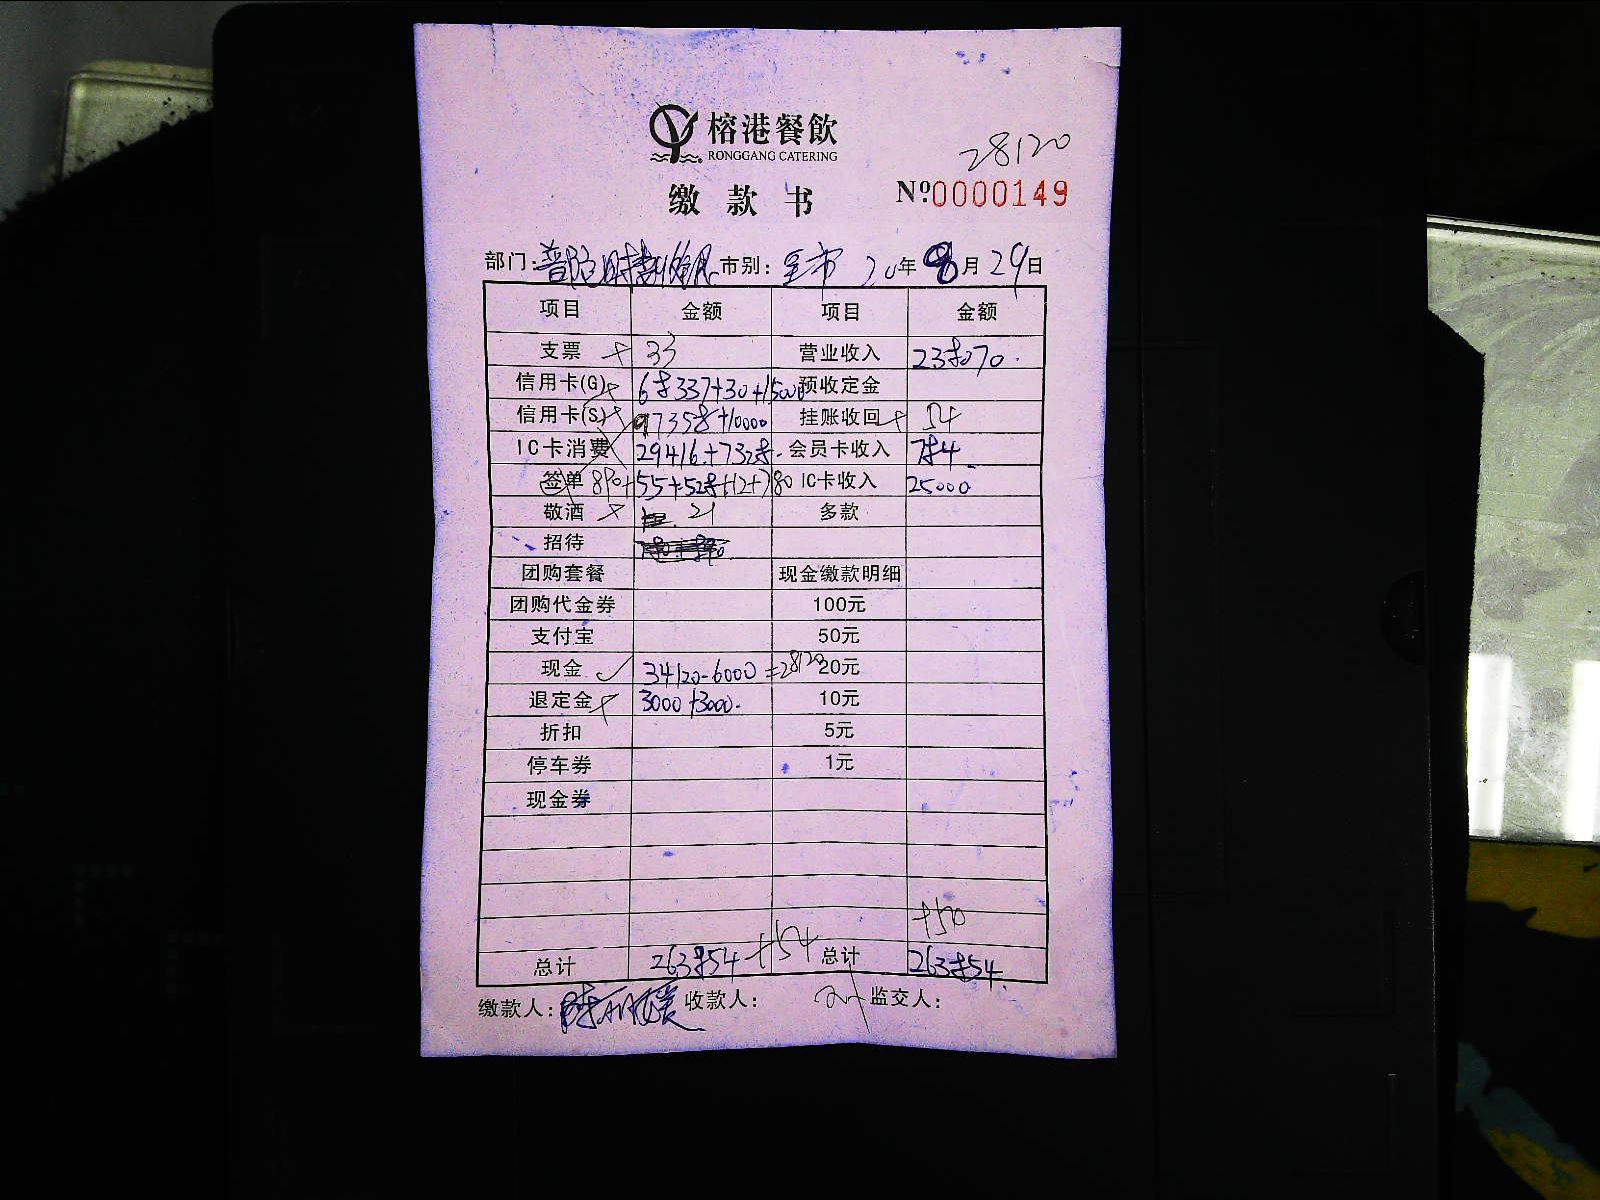 榕港餐飲
RONGGANG CATERING
28120
缴款书 Nº:0000149
部门: 市别: 全市 20年8月29日
项目 金额 项目 金额
支票 × 33 营业收入 238070.
信用卡(G) × 68337+30+15000 预收定金
信用卡(S) × 97358+10000 挂账收回 × 54
IC卡消费 29416.+7328. 会员卡收入 784.
签单 890+55+528+12+780 IC卡收入 25000
敬酒 × 21 多款
招待
团购套餐 现金缴款明细
团购代金券 100元
支付宝 50元
现金 ✓ 34120-6000=28120 20元
退定金 × 3000+3000. 10元
折扣 5元
停车券 1元
现金券
+50
总计 263854 +54 总计 263854.
缴款人: 收款人: 监交人: